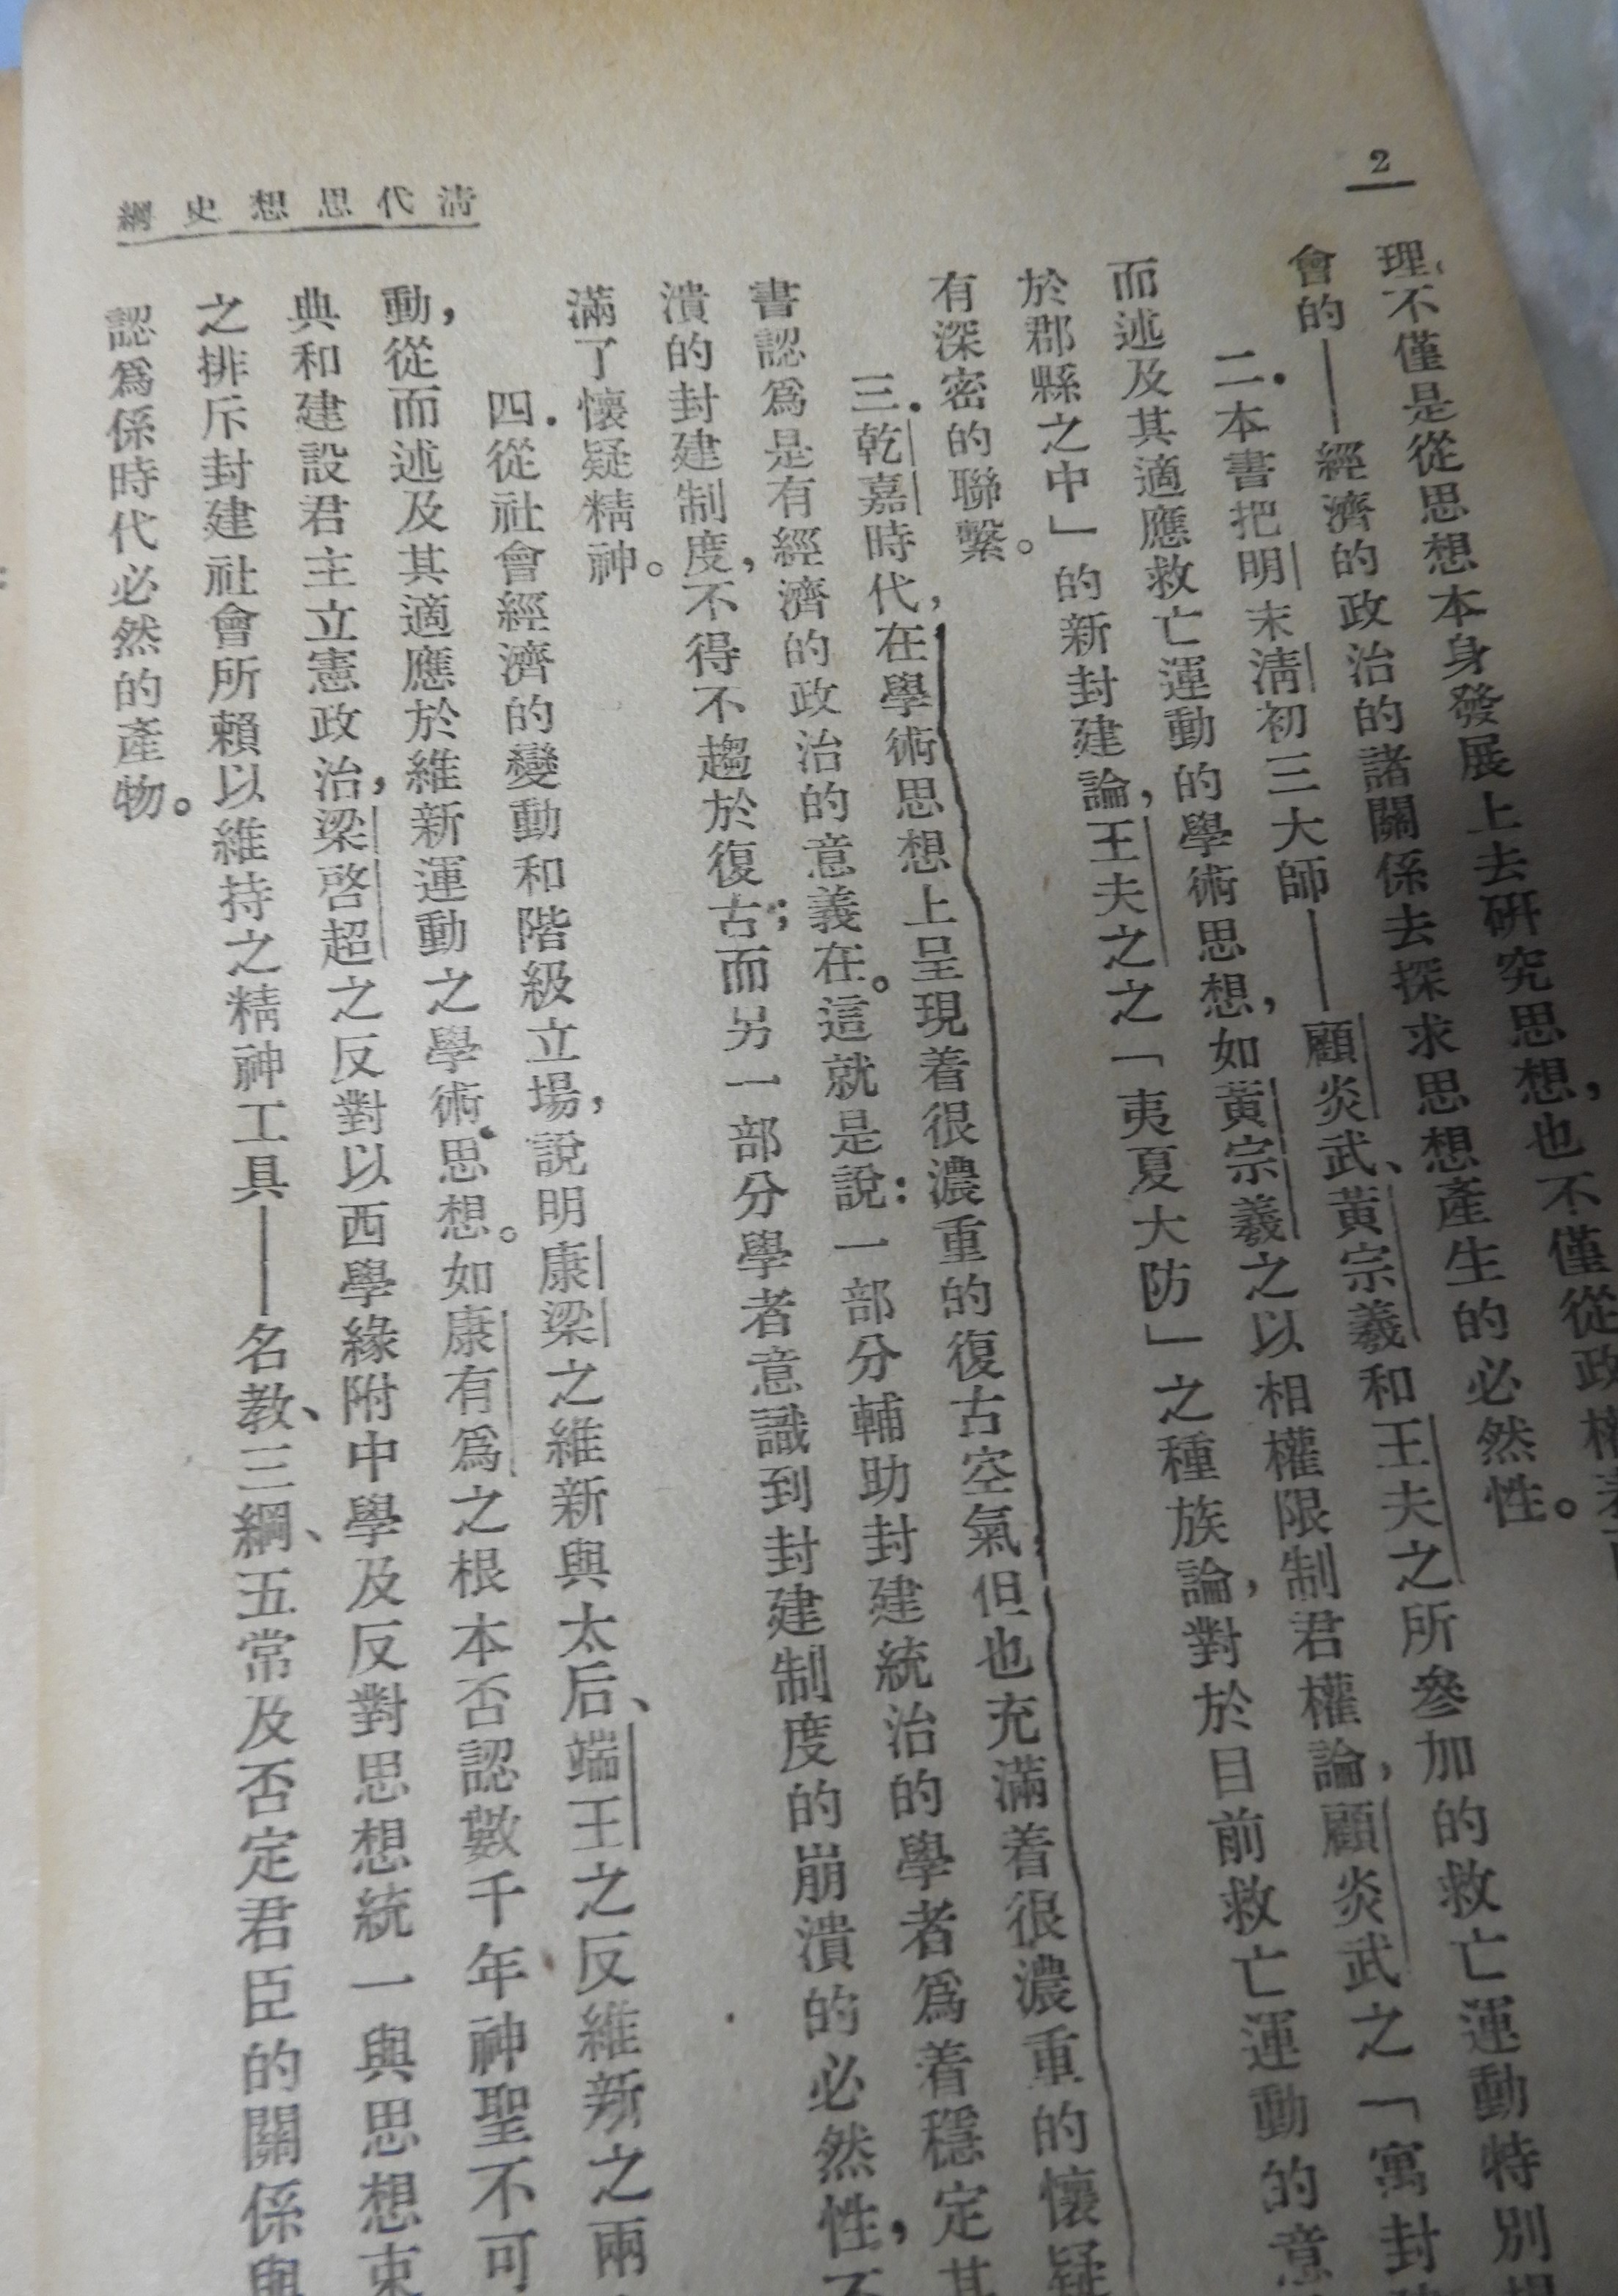 2
清代思想史綱
理,不僅是從思想本身發展上去硏究思想,也不僅從政
會的——經濟的政治的諸關係去探求思想產生的必然性。
二.本書把明末清初三大師——顧炎武、黃宗羲和王夫之所參加的救亡運動特別
而述及其適應救亡運動的學術思想,如黃宗羲之以相權限制君權論,顧炎武之「寓封
於郡縣之中」的新封建論,王夫之之「夷夏大防」之種族論,對於目前救亡運動的意
有深密的聯繫。
三.乾嘉時代,在學術思想上呈現着很濃重的復古空氣,但也充滿着很濃重的懷疑
書認爲是有經濟的政治的意義在。這就是說:一部分輔助封建統治的學者爲着穩定其
潰的封建制度,不得不趨於復古;而另一部分學者意識到封建制度的崩潰的必然性,不
滿了懷疑精神。
四.從社會經濟的變動和階級立場,說明康梁之維新與太后、端王之反維新之兩
動,從而述及其適應於維新運動之學術思想。如康有爲之根本否認數千年神聖不可
典和建設君主立憲政治,梁啓超之反對以西學緣附中學及反對思想統一與思想束
之排斥封建社會所賴以維持之精神工具——名教、三綱、五常及否定君臣的關係與
認爲係時代必然的產物。